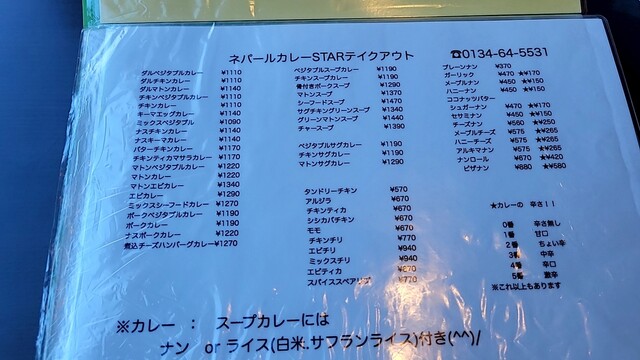 ネパールカレーSTARテイクアウト ☎0134-64-5531
ダルベジタブルカレー ¥1110
ダルチキンカレー ¥1110
ダルマトンカレー ¥1140
チキンベジタブルカレー ¥1110
チキンカレー ¥1110
キーマエッグカレー ¥1140
ミックスベジタブル ¥1090
ナスチキンカレー ¥1140
ナスキーマカレー ¥1140
バターチキンカレー ¥1170
チキンティカマサラカレー ¥1170
マトンベジタブルカレー ¥1220
マトンカレー ¥1220
マトンエビカレー ¥1340
エビカレー ¥1290
ミックスシーフードカレー ¥1270
ポークベジタブルカレー ¥1190
ポークカレー ¥1190
ナスポークカレー ¥1220
煮込チーズハンバーグカレー ¥1270
ベジタブルスープカレー ¥1190
チキンスープカレー ¥1190
骨付きポークスープ ¥1290
マトンスープ ¥1370
シーフードスープ ¥1470
サグチキングリーンスープ ¥1340
グリーンマトンスープ ¥1440
チャースープ ¥1390
ベジタブルサグカレー ¥1190
チキンサグカレー ¥1190
マトンサグカレー ¥1290
タンドリーチキン ¥570
アルジラ ¥670
チキンティカ ¥670
シシカバチキン ¥670
モモ ¥670
チキンチリ ¥770
エビチリ ¥940
ミックスチリ ¥940
エビティカ
スパイススペアリブ
プレーンナン ¥370
ガーリック ¥470 ★¥170
メープルナン ¥450 ★¥150
ハニーナン ¥450 ★¥150
ココナッツバター
シュガーナン ¥470 ★¥170
セサミナン ¥450 ★¥150
チーズナン ¥560 ★¥250
メープルチーズ ¥575 ★¥265
ハニーチーズ ¥575 ★¥265
アルキマナン ¥575 ★¥265
ナンロール ¥670 ★¥420
ピザナン ¥880 ★¥580
★カレーの 辛さ！！
0番 辛さ無し
1番 甘口
2番 ちょい辛
3番 中辛
4番 辛口
5番 激辛
※これ以上もあります
※カレー ： スープカレーには
ナン or ライス(白米.サフランライス)付き(^^)/